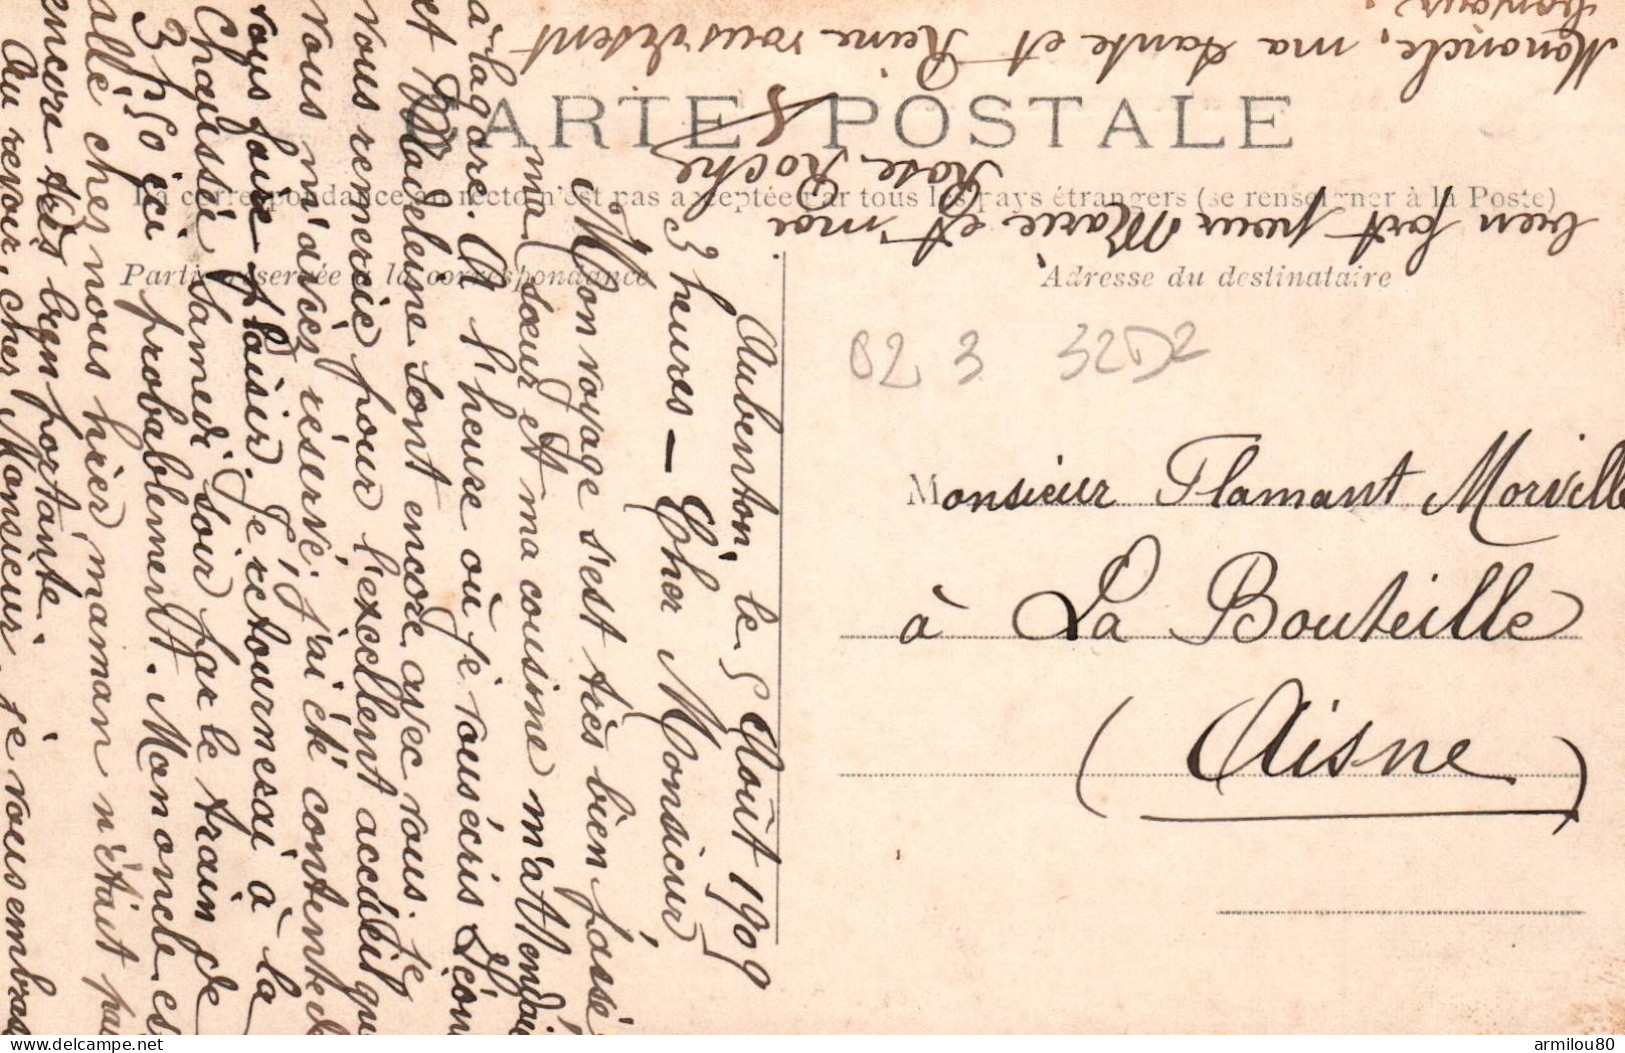 CARTE POSTALE
La correspondance au recto n'est pas acceptée par tous les pays étrangers (se renseigner à la Poste)
Partie réservée à la correspondance
Adresse du destinataire
Aubenton, le 5 Août 1909
3 heures — Cher Monsieur
Mon voyage s'est très bien passé
ma sœur et ma cousine m'attendai
à la gare. A l'heure où je vous écris Léon
et Madeleine sont encore avec vous. Je
vous remercie pour l'excellent accueil que
vous m'avez réservé. J'ai été contente de
vous faire plaisir. Je retournerai à la
Chaussée Samedi soir par le train de
3h50 ici probablement. Mononcle es
allé chez nous hier maman n'était pas
encore très bien portante.
Au revoir, cher Monsieur, je vous embras
bien fort pour Marie et moi.
Rose Roche
Mononcle, ma tante et Reine vous disent
bonjour.
02 3 32D2
Monsieur Flamant Morville
à La Bouteille
(Aisne)
delcampe.net
armilou80